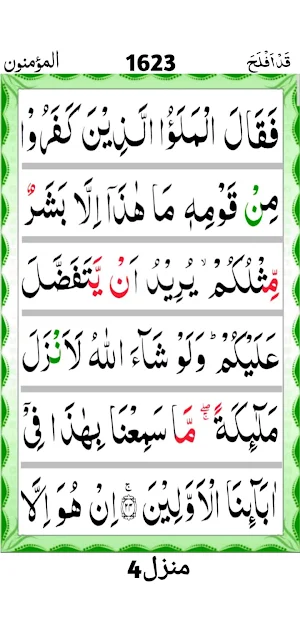 المؤمنون 1623 قَدْ اَفْلَحَ
فَقَالَ الْمَلَؤُا الَّذِيْنَ كَفَرُوْا
مِنْ قَوْمِهٖ مَا هٰذَاۤ اِلَّا بَشَرٌ
مِّثْلُكُمْ ۙ يُرِيْدُ اَنْ يَّتَفَضَّلَ
عَلَيْكُمْ ؕ وَلَوْ شَآءَ اللّٰهُ لَاَنْزَلَ
مَلٰٓئِكَةً ۚۖ مَّا سَمِعْنَا بِهٰذَا فِيْۤ
اٰبَآئِنَا الْاَوَّلِيْنَ ۚ۝۲۴ اِنْ هُوَ اِلَّا
منزل4